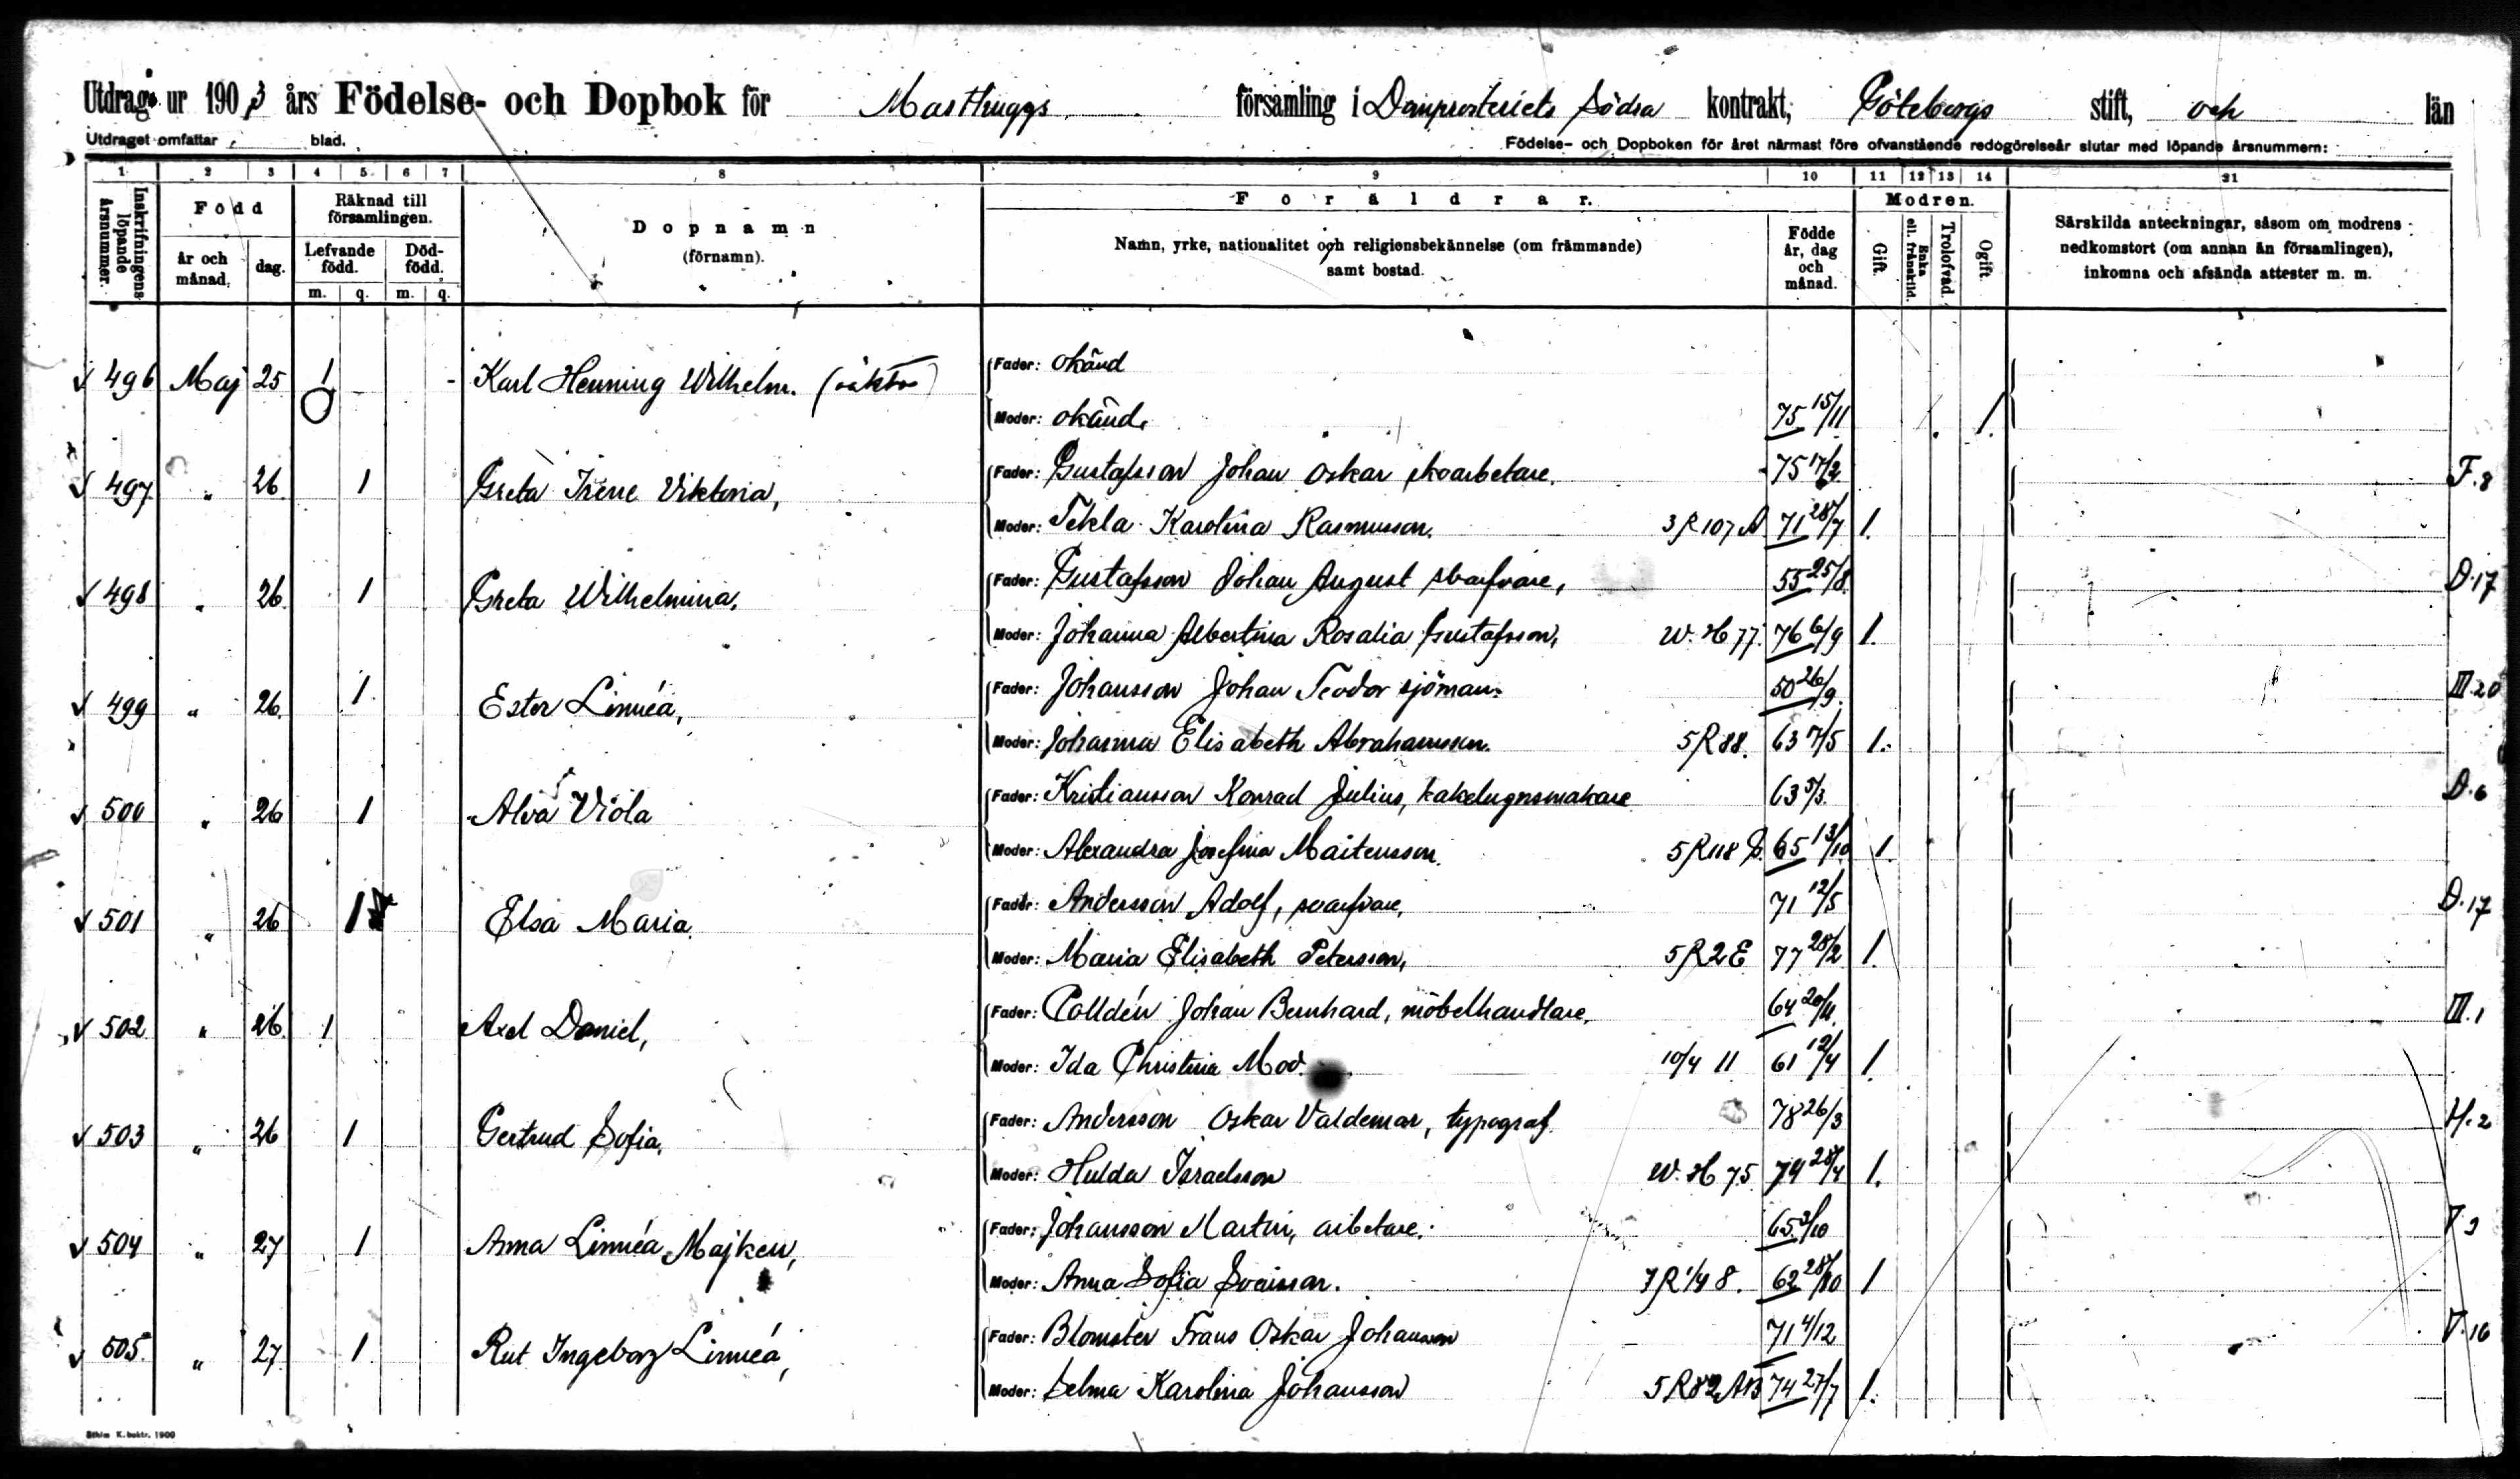 Utdrag ur 1903 års Födelse- och Dopbok för Masthuggs församling i Domprosteriets Södra kontrakt, Göteborgs stift, och län
Utdraget omfattar blad. Födelse- och Dopboken för året närmast före ofvanstående redogörelseår slutar med löpande årsnummern:
1 2 3 4 5 6 7 8 9 10 11 12 13 14 21
Inskrifningens löpande årsnummer.
Född
år och månad.
dag.
Räknad till församlingen.
Lefvande född.
Död-född.
m. q. m. q.
Dopnamn
(förnamn).
Föräldrar.
Namn, yrke, nationalitet och religionsbekännelse (om främmande)
samt bostad.
Födde år, dag och månad.
Modren.
Gift.
Enka ell. frånskild.
Trolofvad.
Ogift.
Särskilda anteckningar, såsom om modrens
nedkomstort (om annan än församlingen),
inkomna och afsända attester m. m.
Fader: okänd
496 Maj 25 1 - Karl Henning Wilhelm.
Moder: okänd. 75 15/11 1.
Fader: Gustafsson Johan Oskar skoarbetare. 75 17/2 F.8
497 " 26 1 Greta Irene Viktoria,
Moder: Tekla Karolina Rasmusson. 3 R 107 A 71 28/7 1.
Fader: Gustafsson Johan August skarfvare, 55 25/8 D.17
498 " 26 1 Greta Wilhelmina.
Moder: Johanna Albertina Rosalia Gustafsson, W. H 77. 76 6/9 1.
Fader: Johansson Johan Teodor sjöman. 50 26/9 III.20
499 " 26. 1 Ester Linnéa,
Moder: Johanna Elisabeth Abrahamsson. 5 R 88. 63 7/5 1.
Fader: Kristiansson Konrad Julius, kakelugnsmakare 63 5/3. D.6
500 " 26 1 Alva Viola
Moder: Alexandra Josefina Mårtensson. 5 R 118 65 13/10 1.
Fader: Andersson Adolf, 71 12/5 D.17
501 " 26 1 Elsa Maria.
Moder: Maria Elisabeth Petersson, 5 R 2 E 77 28/2 1.
Fader: Colldén Johan Bernhard, möbelhandlare. 64 20/11. III.1
502 " 26. 1 Axel Daniel,
Moder: Ida Christina Mod. 10/4 11 61 12/4 1.
Fader: Andersson Oskar Valdemar, typograf 78 26/3 H.2
503 " 26 1 Gertrud Sofia.
Moder: Hulda Israelsson W. H 75. 74 1.
Fader: Johansson Martin, arbetare. 65 3/10
504 " 27 1 Anna Linnéa Majken,
Moder: Anna Sofia Svensson. 7 R 1/4 8. 62 28/10 1
Fader: Blomster Frans Oskar Johansson 71 4/12 V.16
505. " 27. 1 Rut Ingeborg Linnéa,
Moder: Selma Karolina Johansson 5 R 82 AB 74 27/7 1.
Sthlm K. boktr. 1900